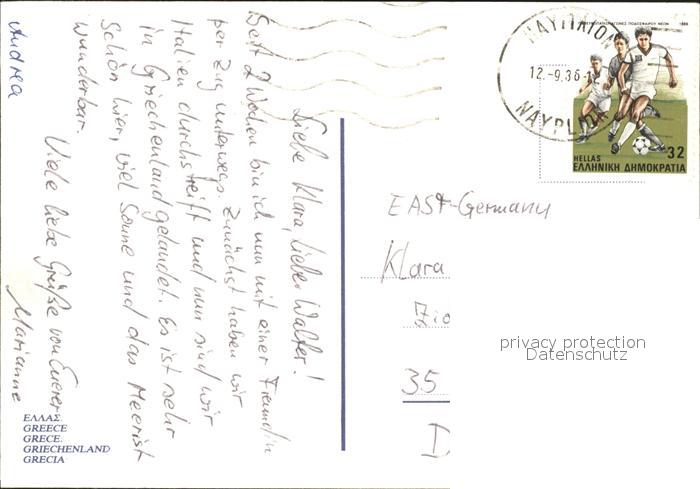 Liebe Klara, lieber Walter!
Seit 2 Wochen bin ich nun mit einer Freundin
per Zug unterwegs. Zunächst haben wir
Italien durchstreift und nun sind wir
in Griechenland gelandet. Es ist sehr
Schön hier, viel Sonne und das Meer ist
wunderbar.
Viele liebe Grüße von Euerer
Marianne
Andrea
ΕΛΛΑΣ
GREECE
GRECE
GRIECHENLAND
GRECIA
ΝΑΥΠΛΙΟΝ
12.-9.36-12
NAYPLION
32
HELLAS
ΕΛΛΗΝΙΚΗ ΔΗΜΟΚΡΑΤΙΑ
EAST-Germany
Klara
35
D
privacy protection
Datenschutz